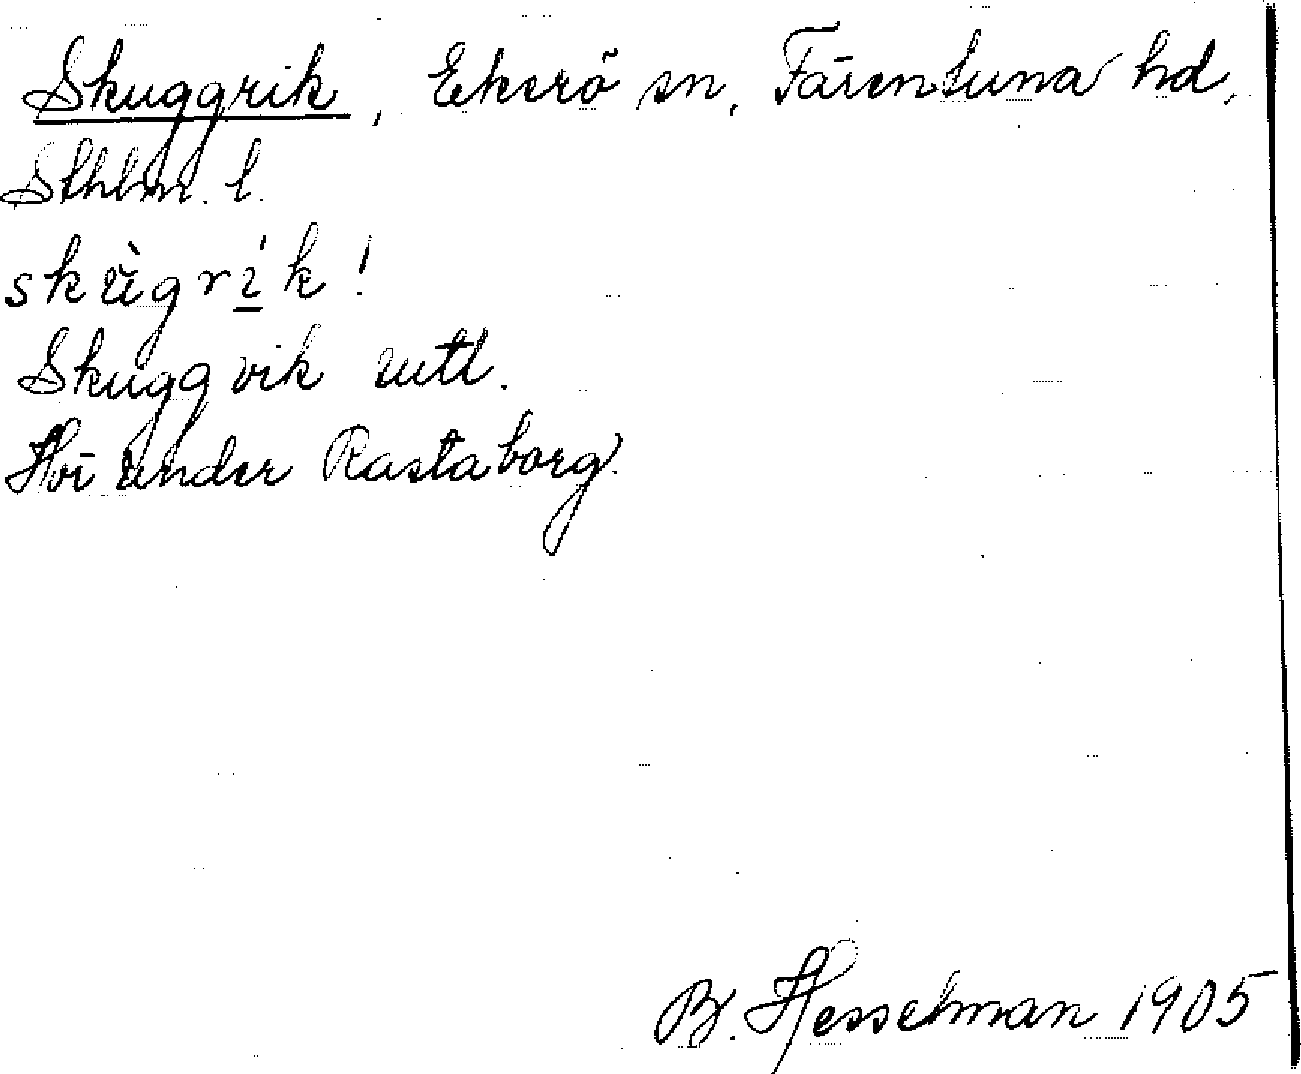 Skuggrik, Ekerö sn, Färentuna hd,
Sthlm. l.
skùgrí̱k!
Skuggvik uttl.
Hvi under Rastaborg.
B. Hesselman 1905